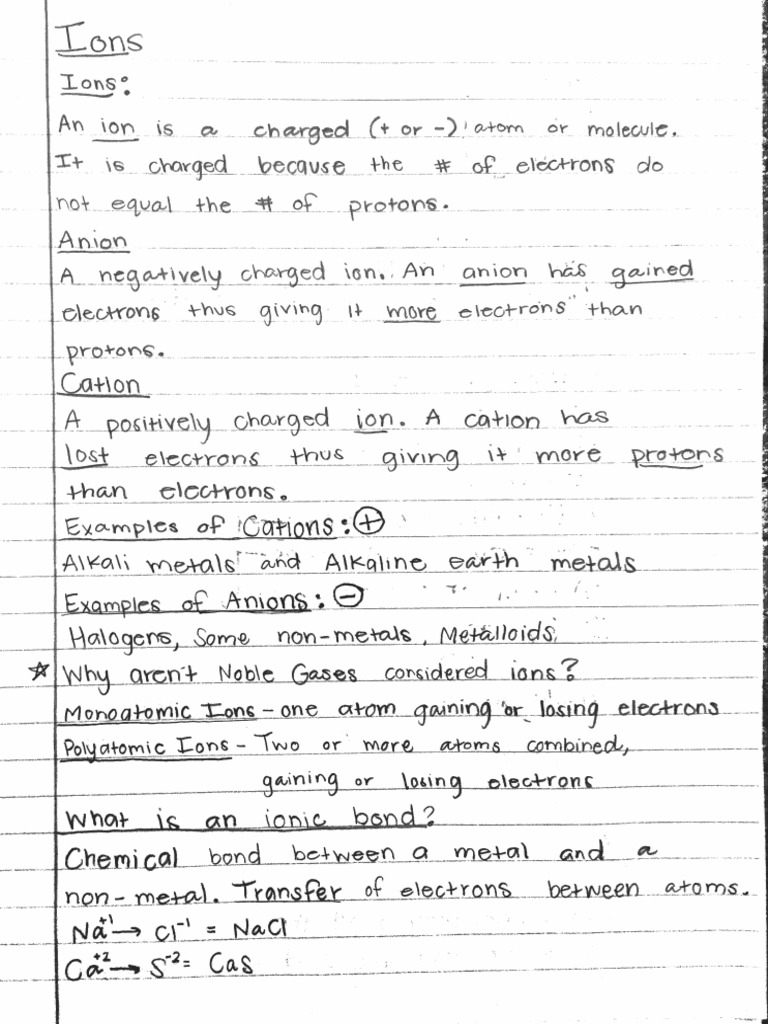 Ions
Ions:
An ion is a charged (+ or -) atom or molecule.
It is charged because the # of electrons do
not equal the # of protons.
Anion
A negatively charged ion. An anion has gained
electrons thus giving it more electrons than
protons.
Cation
A positively charged ion. A cation has
lost electrons thus giving it more protons
than electrons.
Examples of Cations: ⊕
Alkali metals and Alkaline earth metals
Examples of Anions: ⊖
Halogens, Some non-metals, Metalloids
☆ Why aren't Noble Gases considered ions?
Monoatomic Ions - one atom gaining or losing electrons
Polyatomic Ions - Two or more atoms combined,
gaining or losing electrons
What is an ionic bond?
Chemical bond between a metal and a
non-metal. Transfer of electrons between atoms.
Na⁺¹ → Cl⁻¹ = NaCl
Ca⁺² → S⁻² = CaS